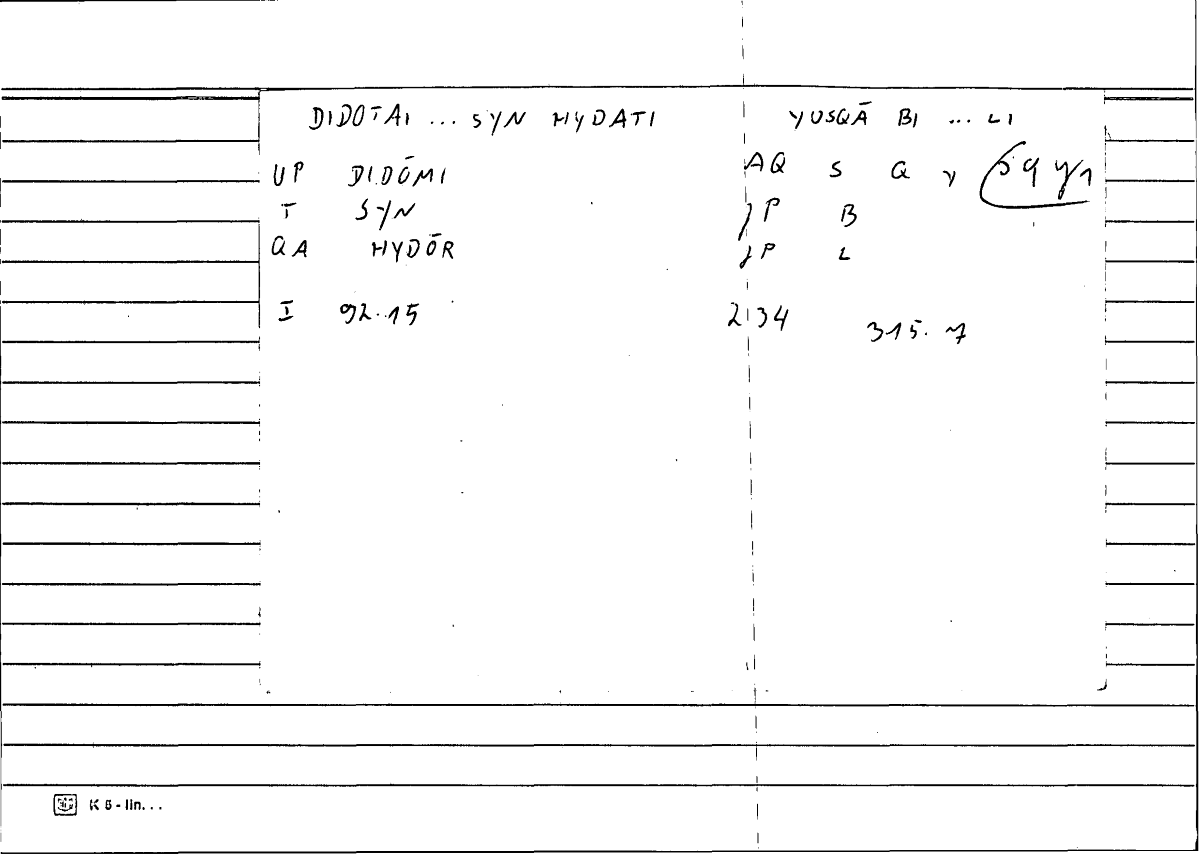 DIDOTAI ... SYN HYDATI YUSQĀ BI ... LI
UP DIDŌMI AQ S Q Y sqy1
T SYN JP B
QA HYDŌR JP L
I 92.15 234 315.7
K 5 - lin...